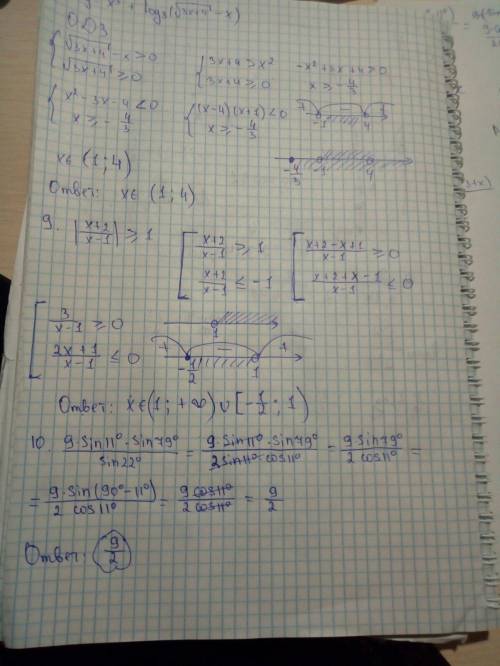 log₃(√3x+4 - x)
ОДЗ
{ √3x+4 - x > 0 { 3x+4 > x² -x²+3x+4 > 0
√3x+4 ≥ 0 3x+4 ≥ 0 x ≥ -4/3
{ x² - 3x - 4 < 0 { (x-4)(x+1) < 0 + - +
x ≥ -4/3 x ≥ -4/3 -1 4
x ∈ (1; 4) -4/3 -1 4
Ответ: x ∈ (1; 4)
9. |x+2/x-1| ≥ 1 [ x+2/x-1 ≥ 1 [ x+2-x+1/x-1 ≥ 0
x+2/x-1 ≤ -1 x+2+x-1/x-1 ≤ 0
[ 3/x-1 ≥ 0 1
2x+1/x-1 ≤ 0 + - + -1/2 1
Ответ: x ∈ (1; +∞) ∪ [-1/2; 1)
10. 9·sin11°·sin79°/sin22° = 9·sin11°·sin79°/2sin11°·cos11° = 9sin79°/2cos11° =
= 9·sin(90°-11°)/2cos11° = 9cos11°/2cos11° = 9/2
Ответ: 9/2